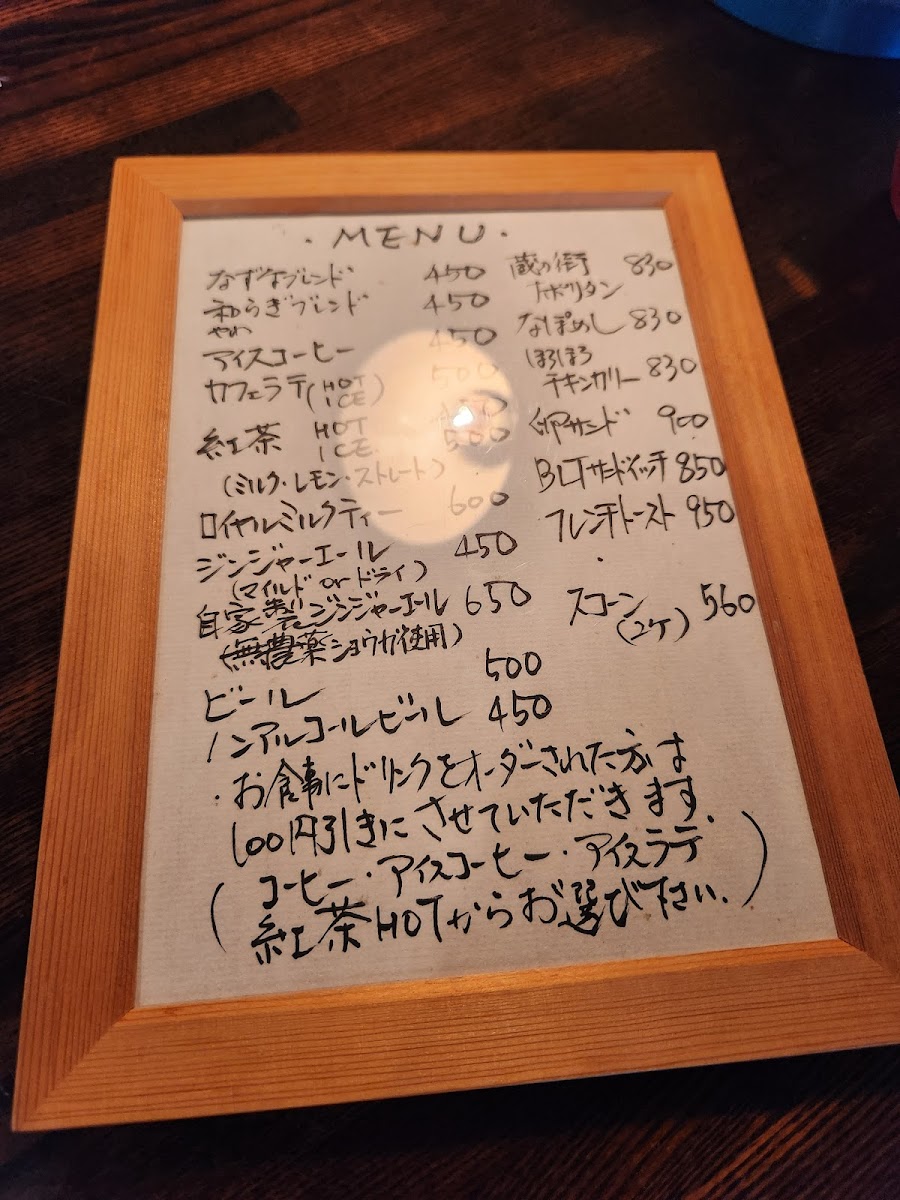 ・MENU・
なずなブレンド 450
和らぎブレンド 450
やわ
アイスコーヒー 450
カフェラテ(HOT ICE) 500
紅茶 HOT 450
ICE 500
(ミルク・レモン・ストレート)
ロイヤルミルクティー 600
ジンジャーエール 450
(マイルド or ドライ)
自家製ジンジャーエール 650
(無農薬ショウガ使用)
ビール 500
ノンアルコールビール 450
蔵の街 830
ナポリタン
なぽめし 830
ほろほろ
チキンカリー 830
卵サンド 900
BLTサンドイッチ 850
フレンチトースト 950
スコーン 560
(2ケ)
・お食事にドリンクをオーダーされた方は
100円引きにさせていただきます.
(コーヒー・アイスコーヒー・アイスラテ
紅茶HOTからお選び下さい.)